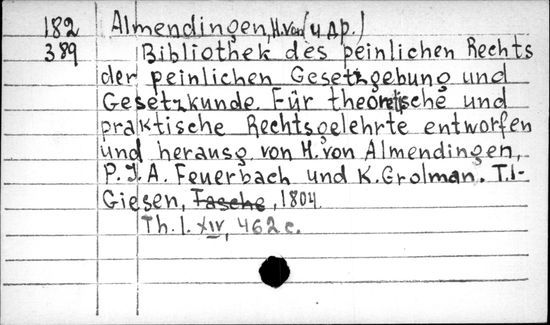 182 Almendingen, H. von (и др.)
389 Bibliothek des peinlichen Rechts
der peinlichen Gesetzgebung und
Gesetzkunde. Für theoretische und
praktische Rechtsgelehrte entworfen
und herausg. von H. von Almendingen,
P. J. A. Feuerbach und K. Grolman. T.1-
Giesen, Tasche, 1804.
Th. 1. XIV, 462 c.